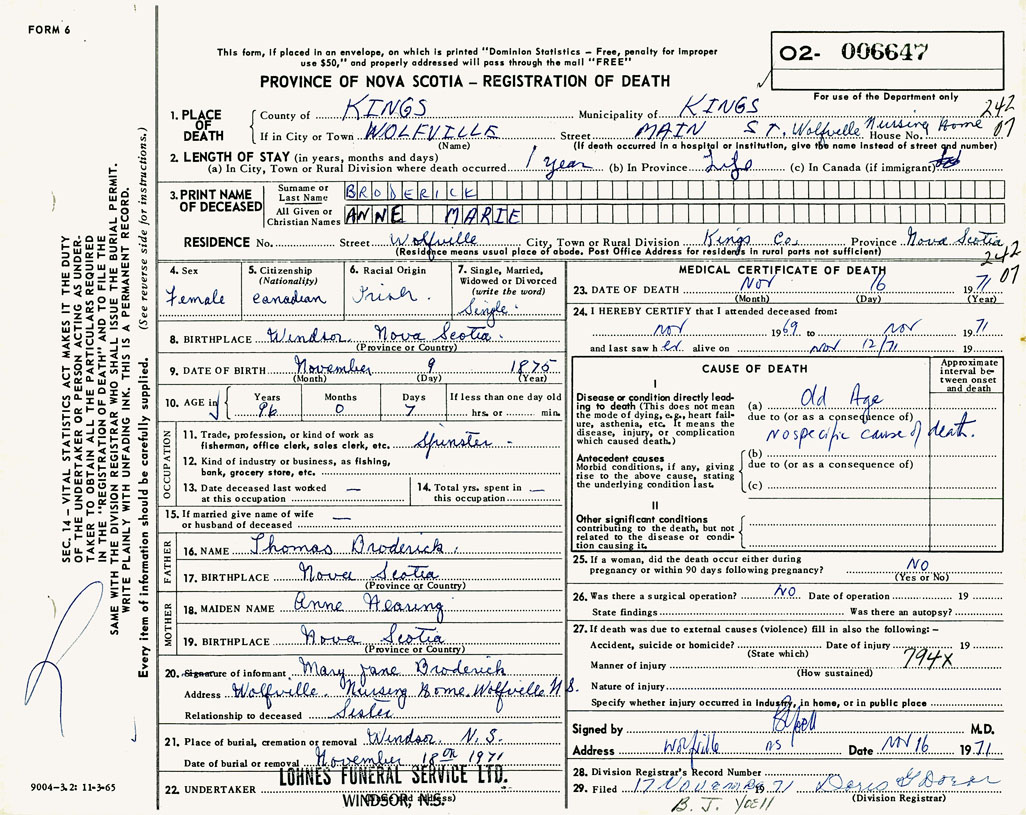 FORM 6
This form, if placed in an envelope, on which is printed "Dominion Statistics – Free, penalty for improper
use $50," and properly addressed will pass through the mail "FREE"
O2- 006647
PROVINCE OF NOVA SCOTIA – REGISTRATION OF DEATH
For use of the Department only
242
07
1. PLACE OF DEATH
County of KINGS Municipality of KINGS
If in City or Town WOLFVILLE Street MAIN ST, Wolfville Nursing Home House No.
(Name) (If death occurred in a hospital or institution, give the name instead of street and number)
2. LENGTH OF STAY (in years, months and days)
(a) In City, Town or Rural Division where death occurred 1 year (b) In Province Life (c) In Canada (if immigrant)
3. PRINT NAME OF DECEASED
Surname or Last Name BRODERICK
All Given or Christian Names ANNE MARIE
RESIDENCE No. Street Wolfville City, Town or Rural Division Kings Co. Province Nova Scotia
(Residence means usual place of abode. Post Office Address for residents in rural parts not sufficient)
242
07
4. Sex
Female
5. Citizenship
(Nationality)
Canadian
6. Racial Origin
Irish.
7. Single, Married,
Widowed or Divorced
(write the word)
Single.
8. BIRTHPLACE Windsor Nova Scotia.
(Province or Country)
9. DATE OF BIRTH November 9 1875
(Month) (Day) (Year)
10. AGE in
Years Months Days If less than one day old
96 0 7 hrs. or min.
OCCUPATION
11. Trade, profession, or kind of work as
fisherman, office clerk, sales clerk, etc. Spinster -
12. Kind of industry or business, as fishing,
bank, grocery store, etc.
13. Date deceased last worked
at this occupation —
14. Total yrs. spent in
this occupation —
15. If married give name of wife
or husband of deceased —
FATHER
16. NAME Thomas Broderick.
17. BIRTHPLACE Nova Scotia
(Province or Country)
MOTHER
18. MAIDEN NAME Anne Hearing
19. BIRTHPLACE Nova Scotia
(Province or Country)
20. Signature of informant Mary Jane Broderick
Address Wolfville Nursing Home. Wolfville N S.
Relationship to deceased Sister
21. Place of burial, cremation or removal Windsor. N.S.
Date of burial or removal November 18th 1971
22. UNDERTAKER LOHNES FUNERAL SERVICE LTD.
WINDSOR, N.S.
MEDICAL CERTIFICATE OF DEATH
23. DATE OF DEATH Nov 16 1971
(Month) (Day) (Year)
24. I HEREBY CERTIFY that I attended deceased from:
nov 1969 to nov 1971
and last saw her alive on nov 12/71 19
CAUSE OF DEATH
Approximate
interval between
onset
and death
I
Disease or condition directly leading
to death (This does not mean
the mode of dying, e.g., heart failure,
asthenia, etc. It means the
disease, injury, or complication
which caused death.)
(a) Old Age
due to (or as a consequence of)
No specific cause of death.
Antecedent causes
Morbid conditions, if any, giving
rise to the above cause, stating
the underlying condition last.
(b)
due to (or as a consequence of)
(c)
II
Other significant conditions
contributing to the death, but not
related to the disease or condition
causing it.
25. If a woman, did the death occur either during
pregnancy or within 90 days following pregnancy? NO
(Yes or No)
26. Was there a surgical operation? NO Date of operation 19
State findings Was there an autopsy?
27. If death was due to external causes (violence) fill in also the following:–
Accident, suicide or homicide? Date of injury 19
(State which)
Manner of injury 794X
(How sustained)
Nature of injury
Specify whether injury occurred in industry, in home, or in public place
Signed by M.D.
Address Wolfville NS Date Nov 16 1971
28. Division Registrar's Record Number
29. Filed 17 NOVEMBER 1971
(Division Registrar)
B. J. YOELL
SEC. 14 – VITAL STATISTICS ACT MAKES IT THE DUTY
OF THE UNDERTAKER OR PERSON ACTING AS UNDERTAKER
TO OBTAIN ALL THE PARTICULARS REQUIRED
IN THE "REGISTRATION OF DEATH" AND TO FILE THE
SAME WITH THE DIVISION REGISTRAR WHO SHALL ISSUE THE BURIAL PERMIT.
WRITE PLAINLY WITH UNFADING INK. THIS IS A PERMANENT RECORD.
Every item of information should be carefully supplied. (See reverse side for instructions.)
9004–3.2: 11-3-65